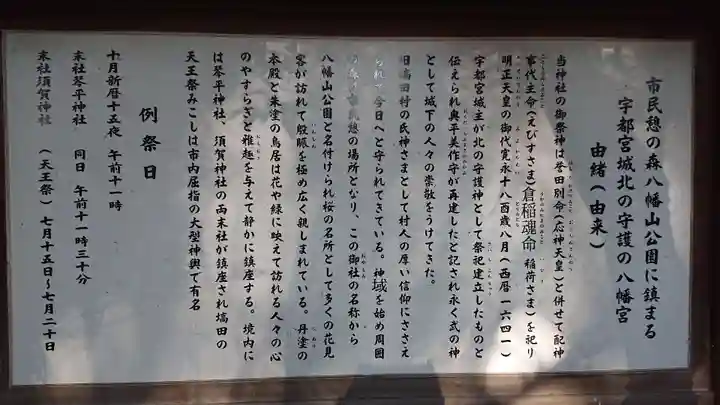 市民憩の森八幡山公園に鎮まる
宇都宮城北の守護の八幡宮
由緒(由来)
当神社の御祭神は誉田別命(応神天皇)と併せて配神
事代主命(えびすさま)倉稲魂命(稲荷さま)を祀り
明正天皇の御代寛永十八酉歳八月(西暦一六四一)
宇都宮城主が北の守護神として祭祀建立したものと
伝えられ奥平美作守が再建したと記され永く武の神
として城下の人々の崇敬をうけてきた。
旧塙田村の氏神さまとして村人の厚い信仰にささえ
られて今日へと守られてきている。神域を始め周囲
の森は市民憩の場所となり、この御社の名称から
八幡山公園と名付けられ桜の名所として多くの花見
客が訪れて殷賑を極め広く親しまれている。丹塗の
本殿と朱塗の鳥居は花や緑に映えて訪れる人々の心
のやすらぎと雅趣を与えて静かに鎮座する。境内に
は琴平神社、須賀神社の両末社が鎮座され塙田の
天王祭みこしは市内屈指の大型神輿て有名
例祭日
十月新暦十五夜 午前十一時
末社琴平神社 同日 午前十一時三十分
末社須賀神社 (天王祭)七月十五日〜七月二十日